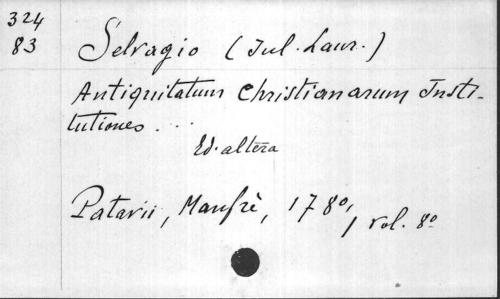 324
83
Selvagio (Jul. Laur.)
Antiquitatum Christianarum Insti-
tutiones...
Ed. altera
Patavii, Manfrè, 1780,
1 vol. 8º